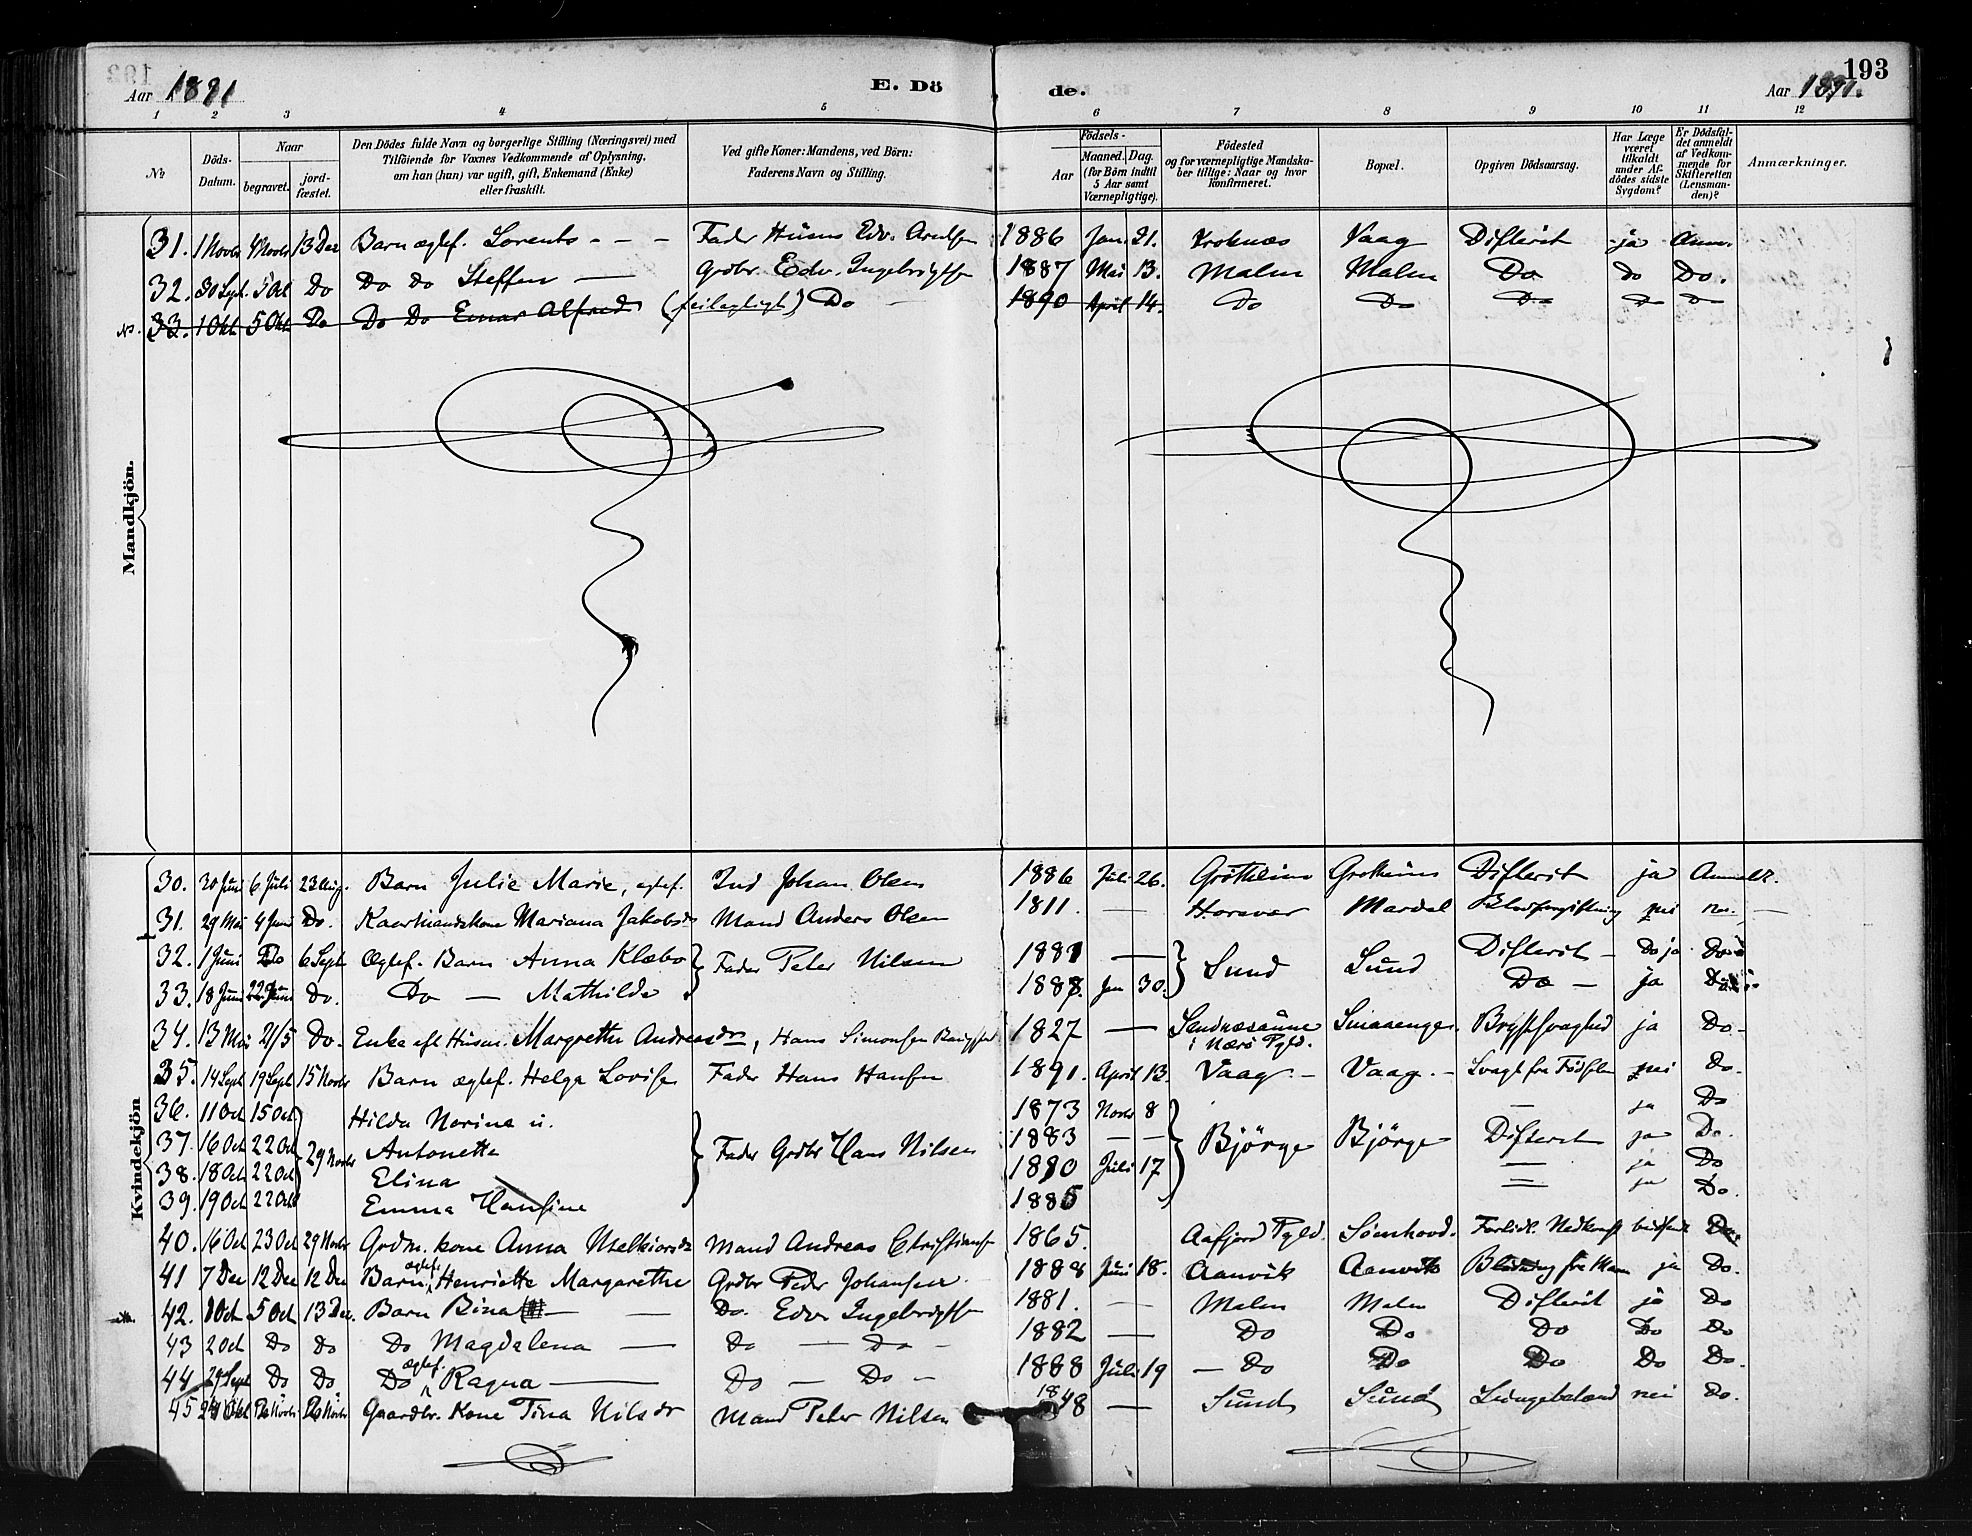 193
Aar 1891 E. Dö de. Aar 1891.
1 2 3 4 5 6 7 8 9 10 11 12
№ Döds-Datum. Naar begravet. jord-fæstet. Den Dödes fulde Navn og borgerlige Stilling (Næringsvei) med Tilföiende for Voxnes Vedkommende af Oplysning, om han (hun) var ugift, gift, Enkemand (Enke) eller fraskilt. Ved gifte Koner: Mandens, ved Börn: Faderens Navn og Stilling. Födsels- Aar Maaned. Dag. (for Börn indtil 5 Aar samt Værnepligtige). Födested og for værnepligtige Mandskaber tillige: Naar og hvor konfirmeret. Bopæl. Opgiven Dödsaarsag. Har Læge været tilkaldt under Afdödes sidste Sygdom? Er Dödsfaldet anmeldt af Vedkommende for Skifteretten (Lensmanden)? Anmærkninger.
Mandkjön.
31. 1 Novbr 4 Novbr 13 Dec Barn ægtef. Lorents - - - Fader Husm Edv. Arntsen 1886 Jan. 21. Kroknæs Vaag Difterit ja Anm.
32. 30 Sept. 5 Oct Do Do Do Steffen — Grdbr. Edv. Ingebrigtsen 1887 Mai 13. Malm Malm Do do Do.
33. 1 Okt 5 Okt Do Do Do Einar Alfred (feilagtigt) Do — 1890 April 14. Do Do Do Do Do
Kvindekjön
30. 30 Juni 6 Juli 23 Aug. Barn Julie Marie, ægtef. Ind Johan Olsen 1886 Juli 26. Grötheim Grotheim Difterit ja Anmeldt.
31. 29 Mai 4 Juni Do. Kaarmandskone Mariana Jakobsdr Mand Anders Olsen 1811. — Horsvær Mardal Blodforgiftning nei nei. —
32. 1 Juni Do 6 Sept Ægtef. Barn Anna Klæbo Fader Peter Nilsen 1881 — Sund Sund Difterit — Do ja Do
33. 18 Juni 22 Juni Do. Do — Mathilde 1888. Jan 30. Do — ja Do
34. 13 Mai 21/5 Do. Enke eft Husm. Margrethe Andreasdr, Hans Simonsen 1827 — Sandnæsaune i Nærö Pgld. Smaaenge. Brystsvaghed ja Do.
35. 14 Sept 19 Sept 15 Novbr Barn ægtef. Helga Lovise Fader Hans Hansen 1891. April 13. Vaag. — Vaag. — Svagt fra Födselen nei Do.
36. 11 Oct 15 Oct Hilda Norina u. 1873 Novbr 8 — ja Do
37. 16 Oct 22 Oct 29 Novbr Antonette Fader Grdbr Hans Nilsen 1883 — — Björge Björge Difterit ja Do.
38. 18 Oct 22 Oct Elina 1890 Juli 17 — ja Do
39. 19 Oct 22 Oct Emma Hansine 1885 — ja Do.
40. 16 Oct 23 Oct 29 Novbr Grdm. kone Anna Melkiorsdr Mand Andreas Christiansen 1865. Aafjord Pgld. Sömhovd. Forlidt. Nedkomst Do
41 7 Dec 12 Dec 12 Dec Barn ægtef. Henriette Margarethe Grdbr Peder Johansen 1888 Juni 18. Aanvik Aanvik Blödning fra ja Do.
42. 1 Oct 5 Oct 13 Dec. Barn Bina — — Do. Edv Ingebrigtsen 1881. — Malm Malm Difterit ja Do
43 2 Oct Do do Do Magdalena — Do — Do — 1882 — Do Do Do Do Do
44 29 Sept Do Do Do ægtef. Ragna — Do — Do — 1888 Juli 19 — Do Do Do Do Do.
45 Gaardbr. Kone Tina Nilsdr Mand Peter Nilsen 1848 — Sund Sund Lungebetænd nei Do.